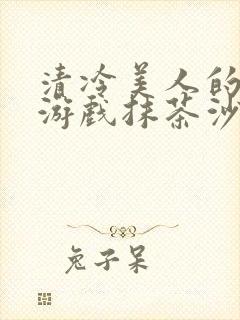 清冷美人的
游戏抹茶沙
兔子呆